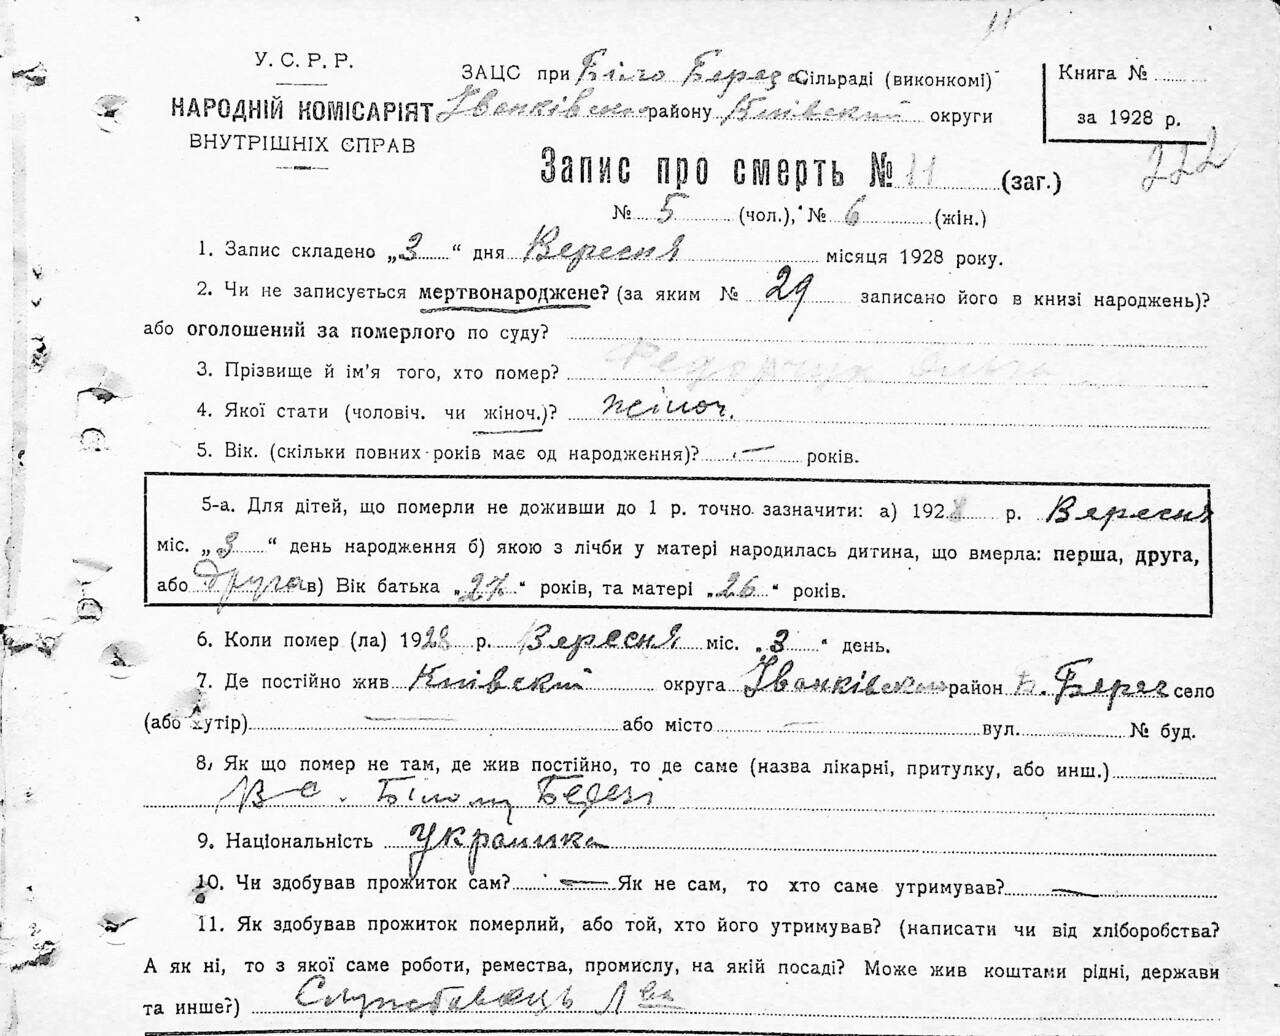 У. С. Р. Р.
НАРОДНІЙ КОМІСАРІЯТ
ВНУТРІШНІХ СПРАВ
ЗАЦС при Біло Береза Сільраді (виконкомі)
Іванківсько району Київский округи
Книга №
за 1928 р.
222
Запис про смерть № 11 (заг.)
№ 5 (чол.), № 6 (жін.)
1. Запис складено „3“ дня Вересня місяця 1928 року.
2. Чи не записується мертвонароджене? (за яким № 29 записано його в книзі народжень)?
або оголошений за померлого по суду?
3. Прізвище й ім'я того, хто помер? Федорчук Ольга
4. Якої стати (чоловіч. чи жіноч.)? жіноч.
5. Вік. (скільки повних років має од народження)? — років.
5-а. Для дітей, що померли не доживши до 1 р. точно зазначити: а) 1928 р. Вересня
міс. „3“ день народження б) якою з лічби у матері народилась дитина, що вмерла: перша, друга,
або Друга в) Вік батька „27“ років, та матері „26“ років.
6. Коли помер (ла) 1928 р. Вересня міс. „3“ день.
7. Де постійно жив Київский округа Іванківсько район Б. Берез село
(або хутір) — або місто — вул. № буд.
8. Як що помер не там, де жив постійно, то де саме (назва лікарні, притулку, або инш.)
В с. Білому Березі
9. Національність Украинка
10. Чи здобував прожиток сам? — Як не сам, то хто саме утримував? —
11. Як здобував прожиток померлий, або той, хто його утримував? (написати чи від хліборобства?
А як ні, то з якої саме роботи, ремества, промислу, на якій посаді? Може жив коштами рідні, держави
та инше?) Служтбовець